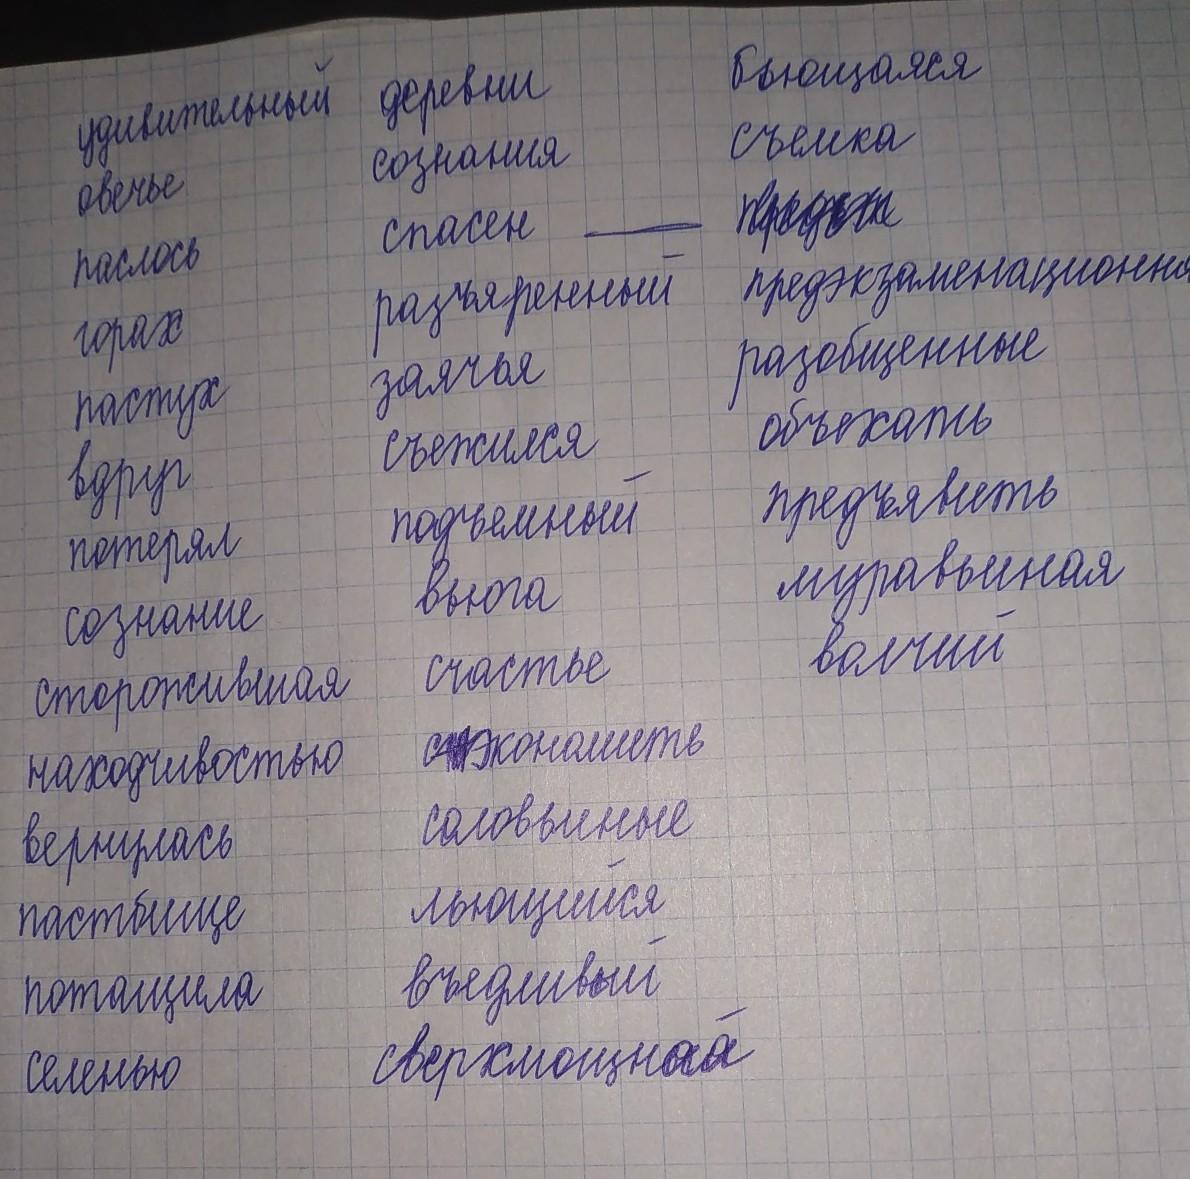 удивительный
овечье
паслось
горах
пастух
вдруг
потерял
сознание
сторожившая
находчивостью
вернулась
пастбище
потащила
селенью
деревни
сознания
спасен
разъяренный
заячья
съежился
подъемный
вьюга
счастье
сэкономить
соловьиные
льющийся
въедливый
сверхмощный
бьющаяся
съемка
предэкзаменационна
разобщенные
объехать
предъявить
муравьиная
волчий